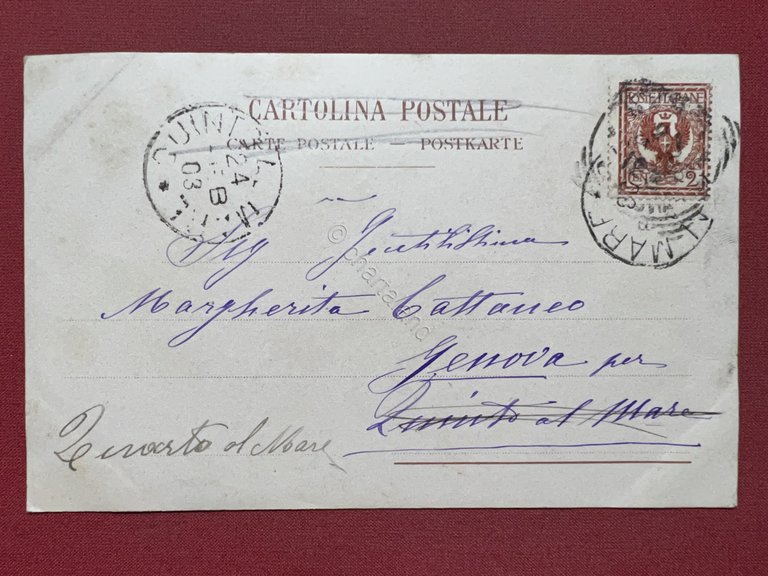 CARTOLINA POSTALE
CARTE POSTALE — POSTKARTE
POSTE ITALIANE
CENT. 2
24
03
AL MARE
Sig Gentilissima
Margherita Cattaneo
Genova per
Quinto al Mare
Quarto al Mare